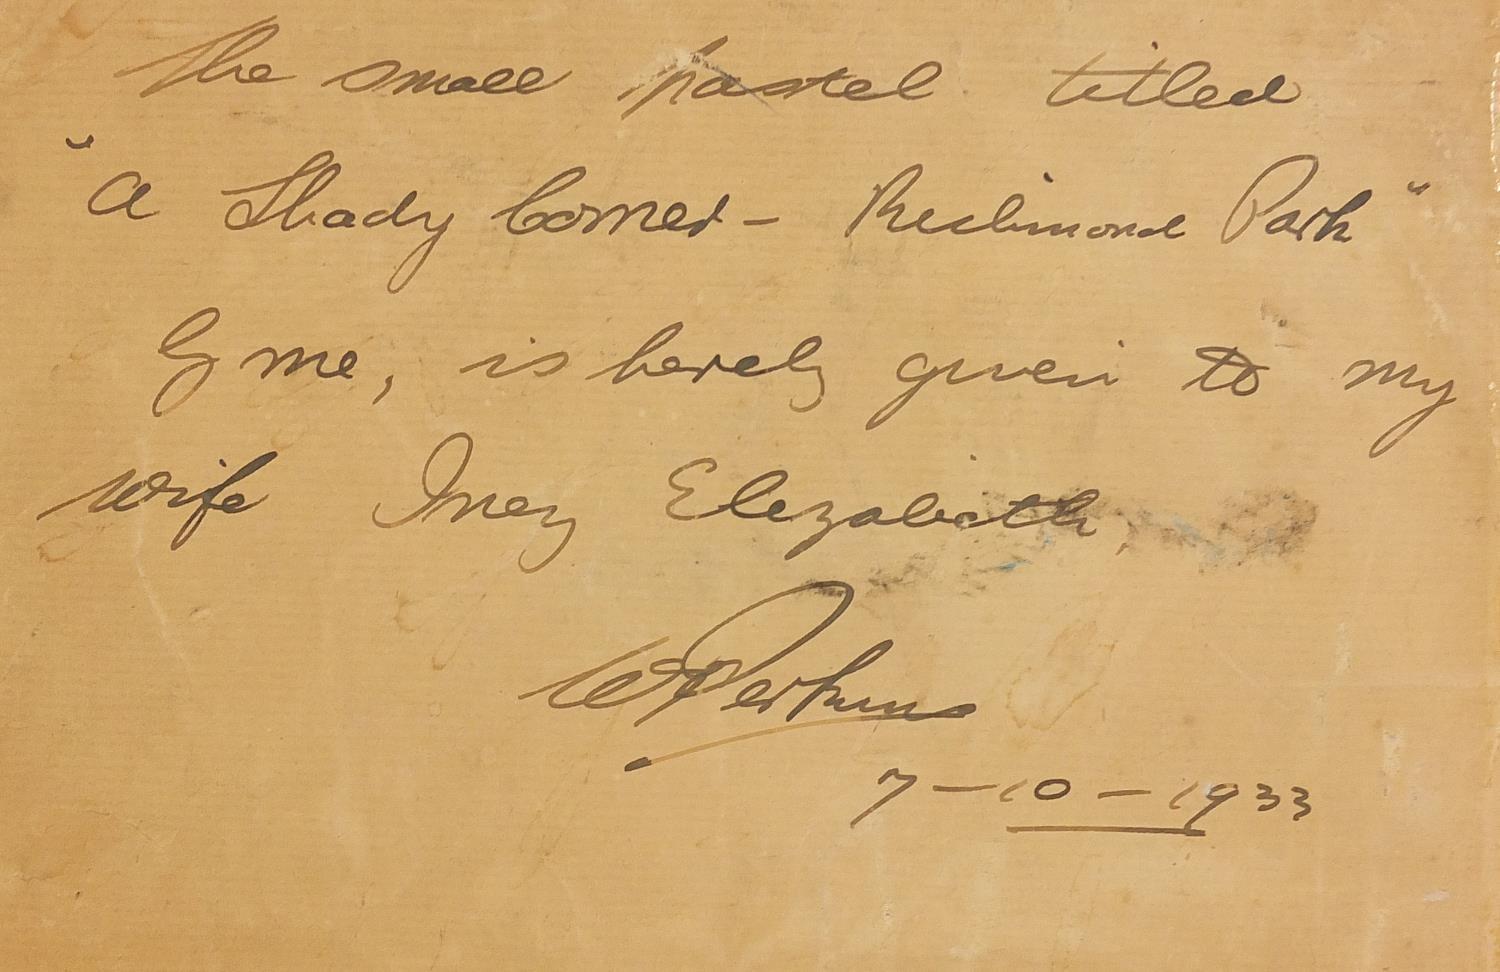 The small pastel titled
"A Shady Corner - Richmond Park"
by me, is hereby given to my
wife Inez Elizabeth,
W Perkins
7-10-1933